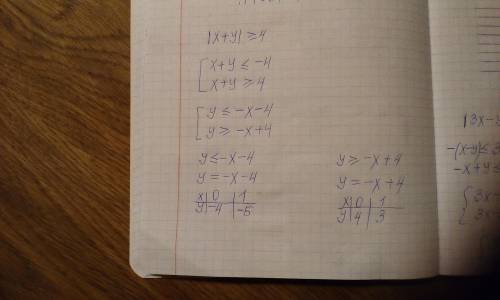 |x+y| ≥ 4
x+y ≤ -4
x+y ≥ 4
y ≤ -x-4
y ≥ -x+4
y ≤ -x-4
y = -x-4
x | 0 | 1
y | -4 | -5
y ≥ -x+4
y = -x+4
x | 0 | 1
y | 4 | 3
|3x-
-(x-y) ≤ 3
-x+y ≤
3x
3x